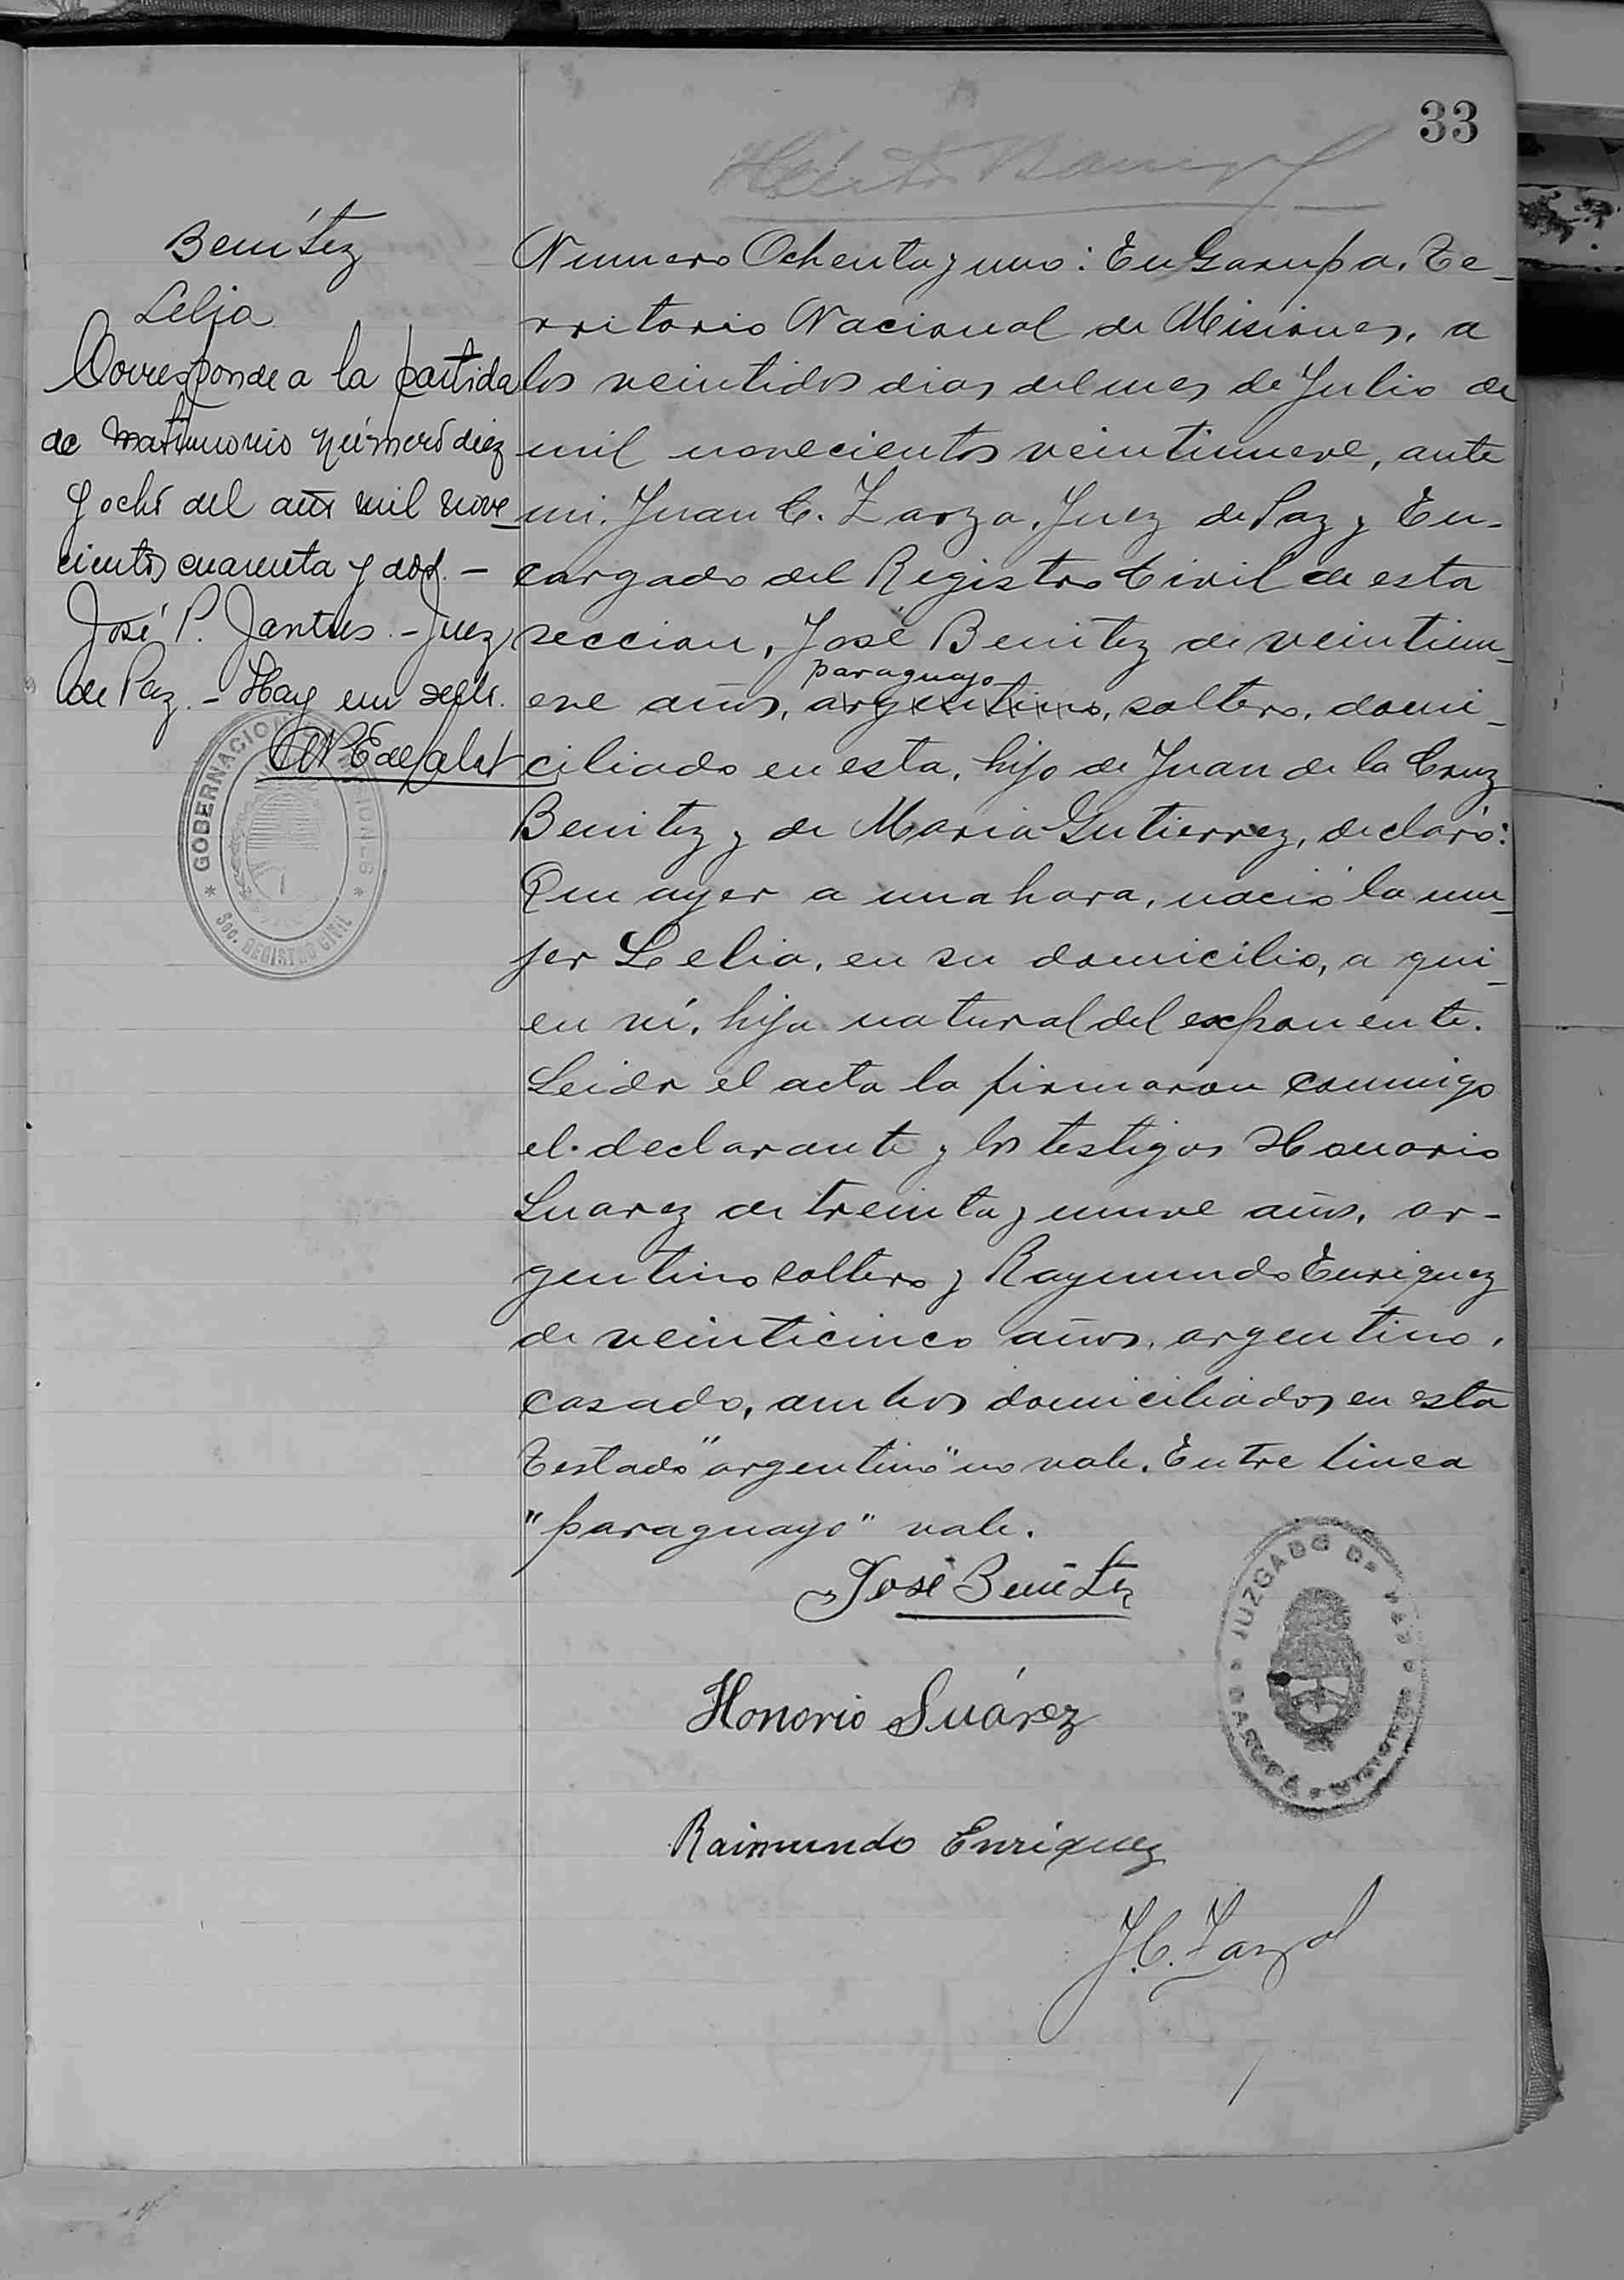 33
Benítez
Lelia
Corresponde a la partida
de matrimonio número diez
y ocho del año mil nove-
cientos cuarenta y dos. -
José P. Jantus - Juez
de Paz. - Hay un sello.
GOBERNACION MISIONES
Sec. REGISTRO CIVIL
Numero Ochenta y uno: En Garupa, Te-
rritorio Nacional de Misiones, a
los veintidos dias del mes de Julio de
mil novecientos veintinueve, ante
mi, Juan C. Zarza, Juez de Paz y En-
cargado del Registro Civil de esta
seccion, José Benitez de veintinu-
paraguayo
eve años, argentino, soltero, domi-
ciliado en esta, hijo de Juan de la Cruz
Benitez y de Maria Gutierrez, declaró:
Que ayer a una hora, nació la mu-
jer Lelia, en su domicilio, a qui-
en ví, hija natural del exponente.
Leida el acta la firmaron conmigo
el declarante y los testigos Honorio
Suarez de treinta y nueve años, ar-
gentino soltero y Raymundo Enriquez
de veinticinco años, argentino,
casado, ambos domiciliados en esta
Testado "argentino" no vale. Entre linea
"paraguayo" vale.
José Benítez
JUZGADO DE PAZ
GARUPÁ MISIONES
Honorio Suárez
Raimundo Enriquez
J.C. Zarza